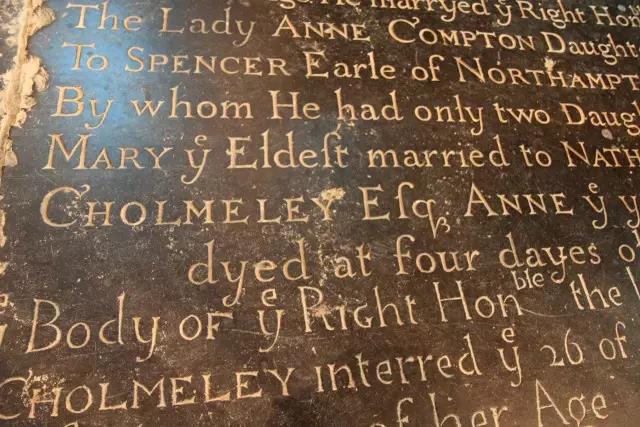 He marryed yͤ Right Hon
The Lady ANNE COMPTON Daught
To SPENCER Earle of NORTHAMPT
By whom He had only two Daug
MARY yͤ Eldeſt married to NATH
CHOLMELEY Eſqꝫ ANNE yͤ y
dyed at four dayes o
yͤ Body OF yͤ Right Honble the
CHOLMELEY interred yͤ 26 of
of her Age